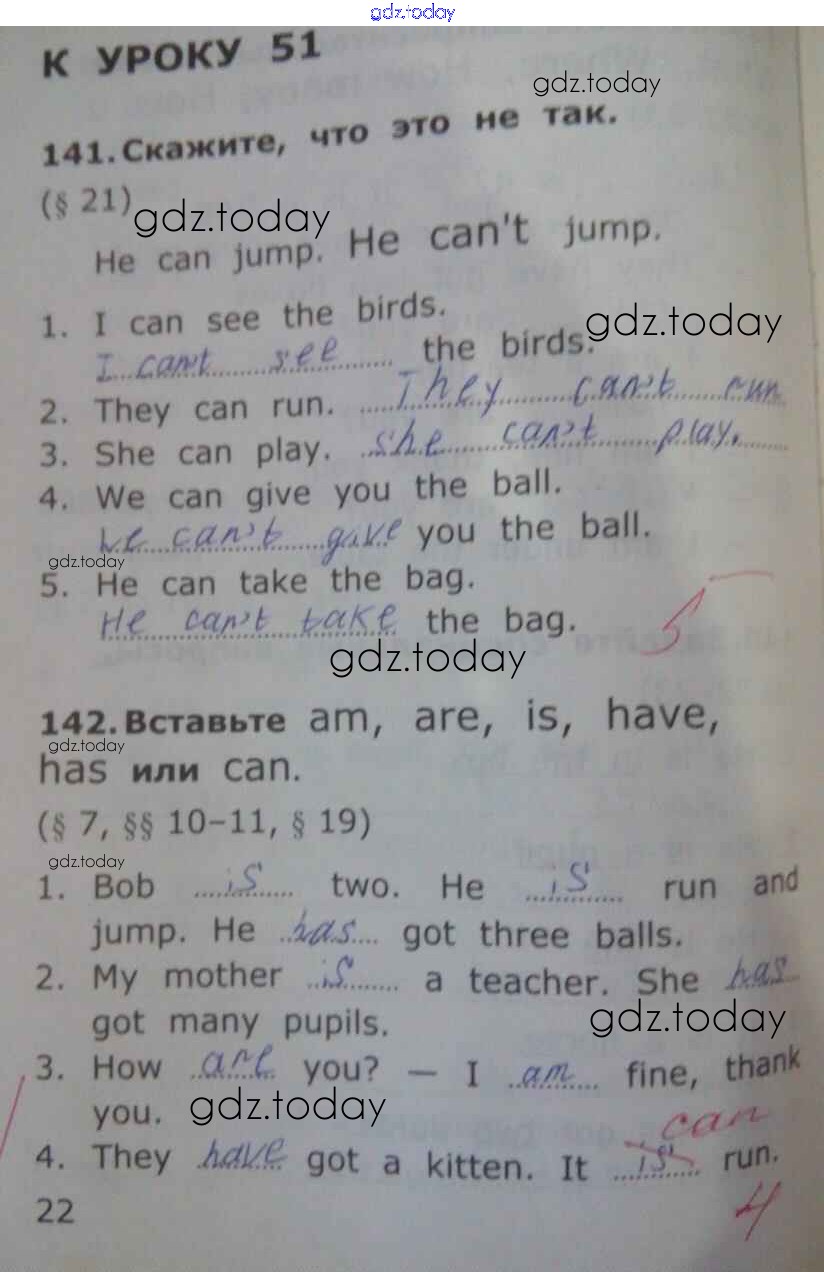 gdz.today
К УРОКУ 51
gdz.today
141. Скажите, что это не так.
(§ 21)
gdz.today
He can jump. He can't jump.
1. I can see the birds.
gdz.today
I can't see the birds.
2. They can run. They can't run
3. She can play. she can't play.
4. We can give you the ball.
We can't give you the ball.
gdz.today
5. He can take the bag.
He can't take the bag.
5-
gdz.today
142. Вставьте am, are, is, have,
gdz.today
has или can.
(§ 7, §§ 10–11, § 19)
gdz.today
1. Bob is two. He is run and
jump. He has got three balls.
2. My mother is a teacher. She has
got many pupils.
gdz.today
3. How are you? — I am fine, thank
you.
gdz.today
can
4. They have got a kitten. It is run.
22
4